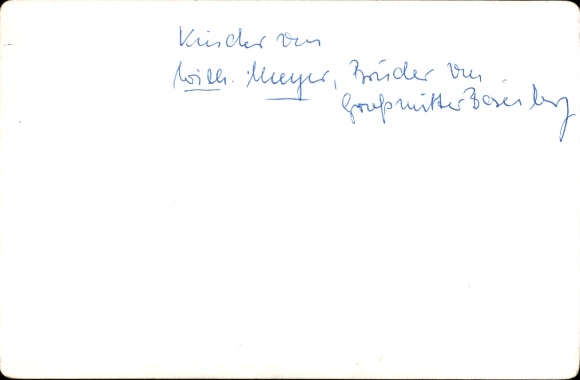 Kinder von
Wilh. Meyer, Bruder von
Großmutter Basenberg